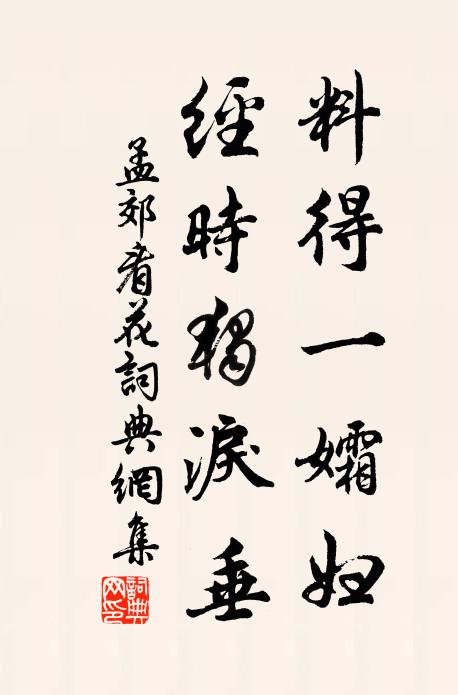 料得一孀妇
經時獨淚垂
孟郊看花詞典網集
詞典網印